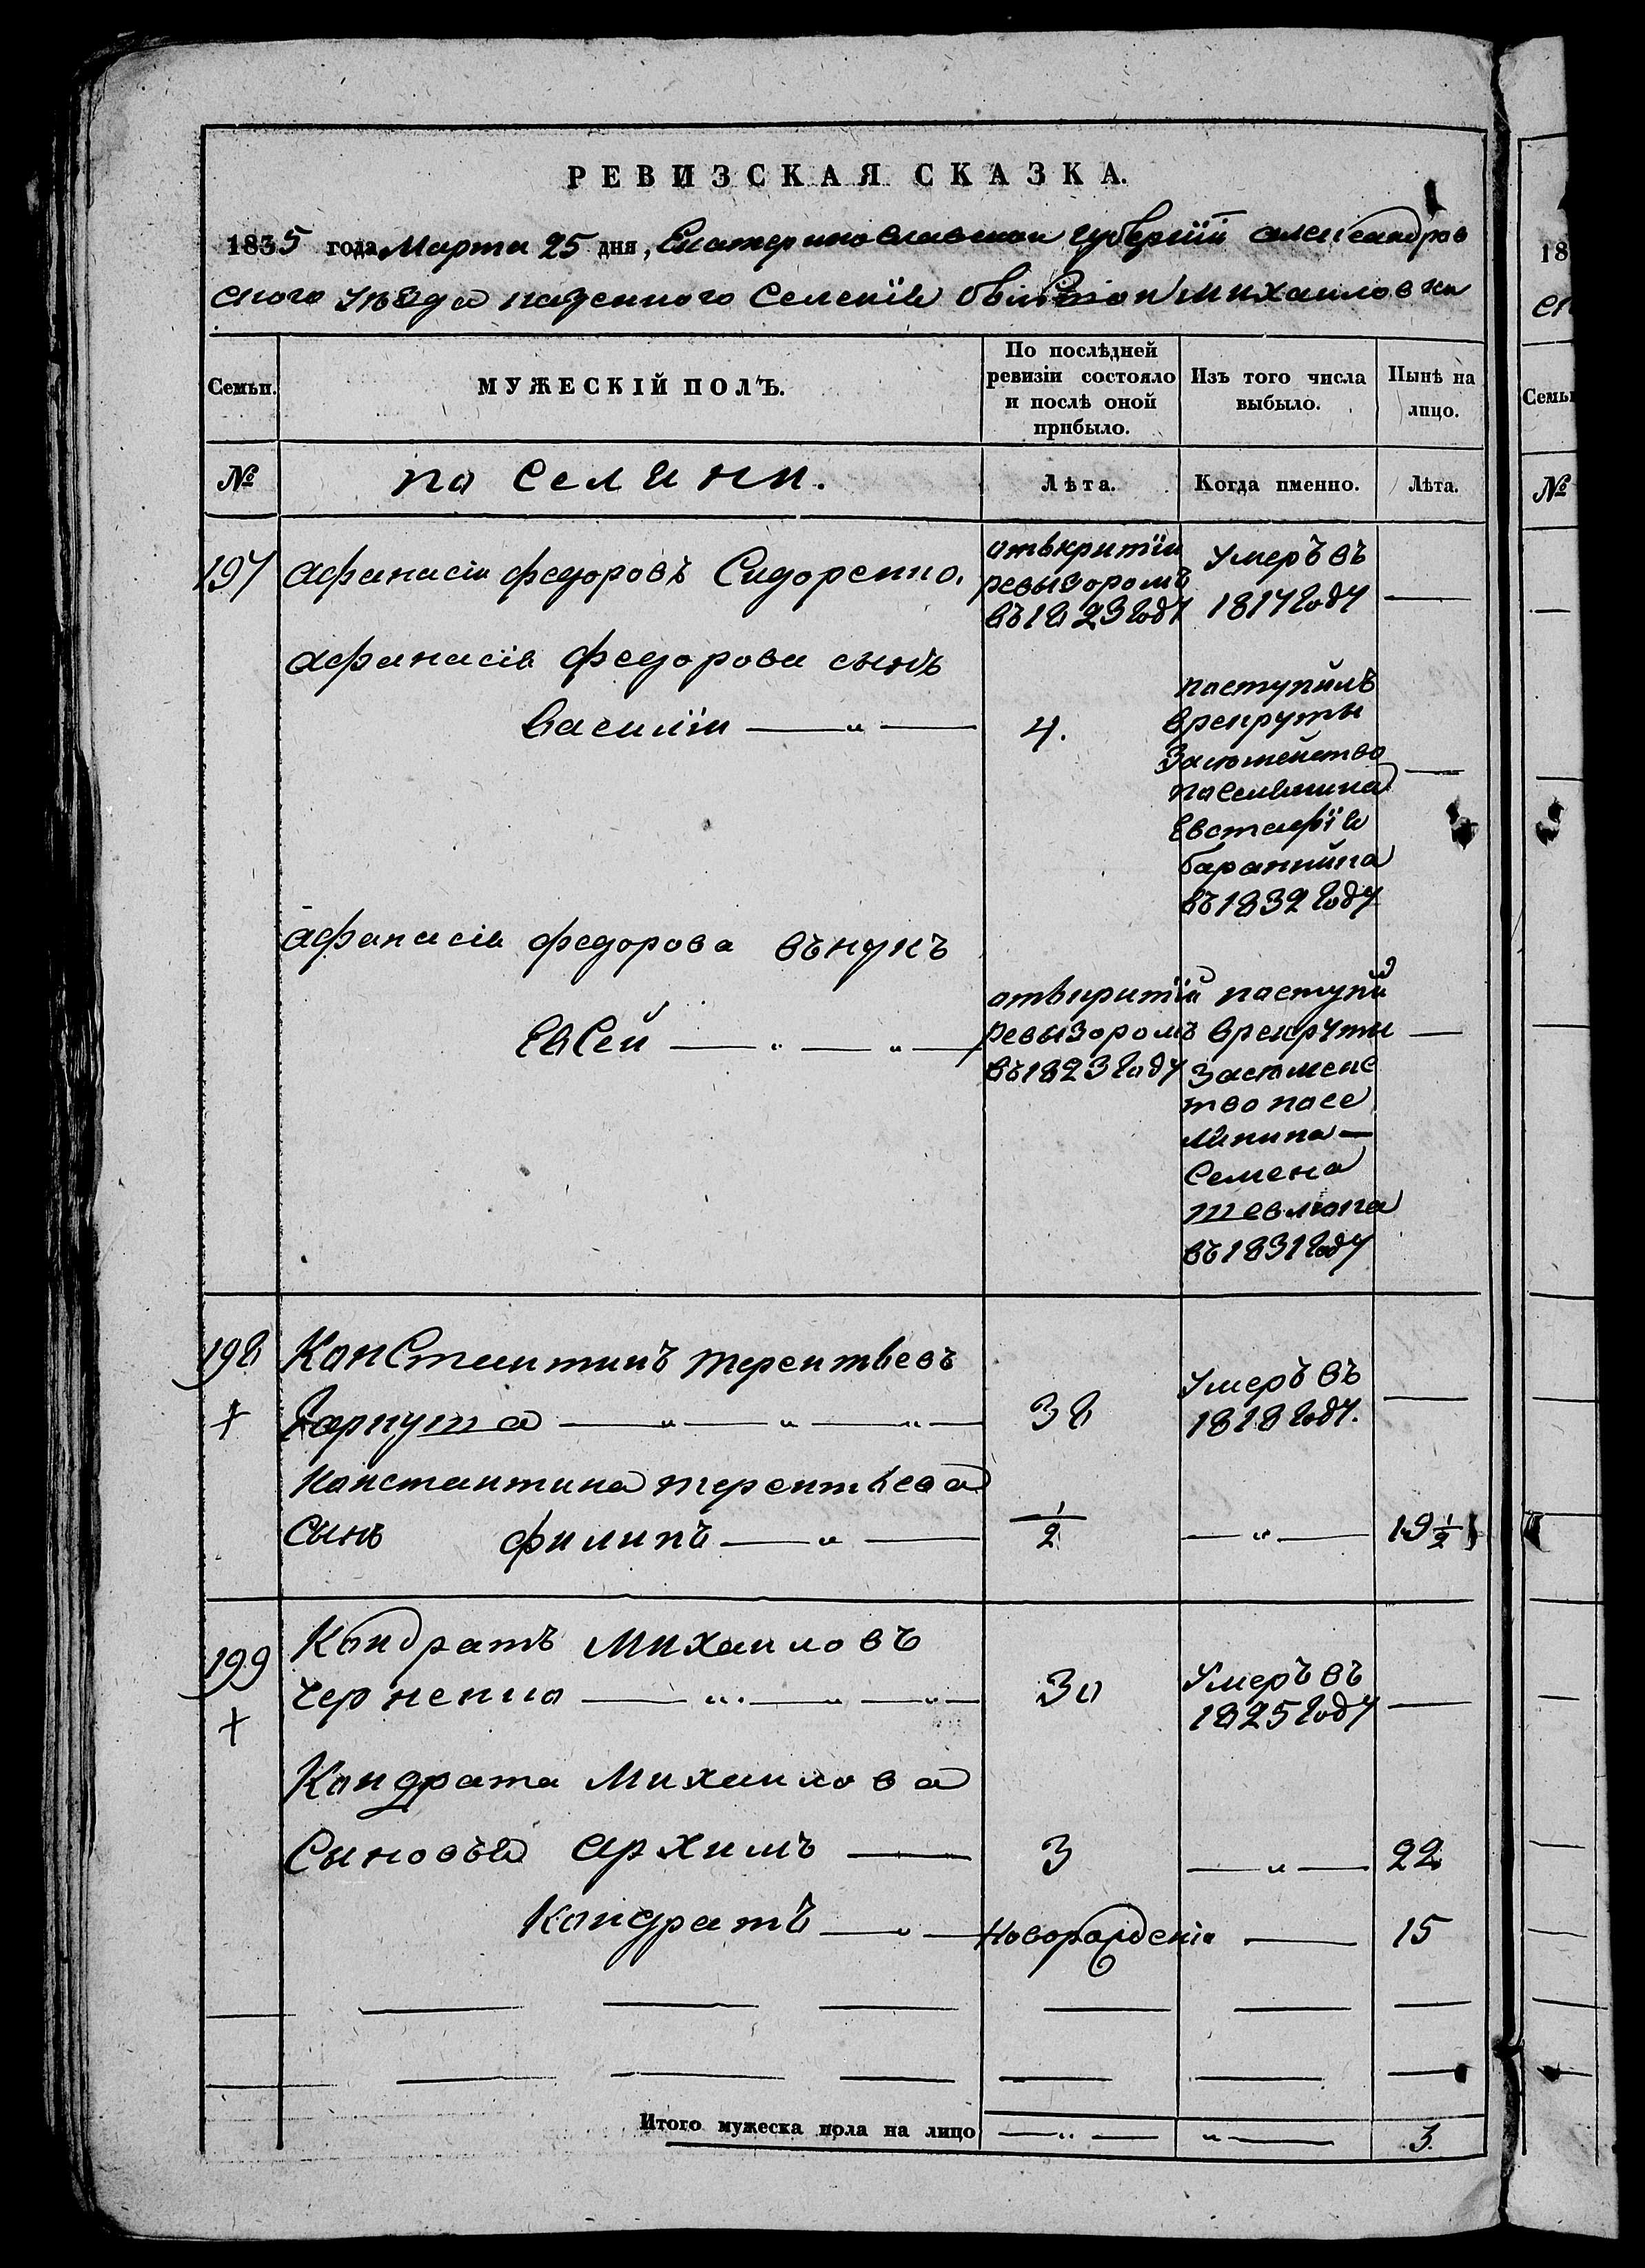 РЕВИЗСКАЯ СКАЗКА.
1835 года Марта 25 дня, Екатеринославской губернїи александров
ского уѣзда казенного Селенїя Михаиловки
Семьи.
МУЖЕСКІЙ ПОЛЪ.
По послѣдней ревизіи состояло и послѣ оной прибыло.
Изъ того числа выбыло.
Нынѣ на лицо.
№
по Селяни.
Лѣта.
Когда именно.
Лѣта.
197 афанасіи федоровъ Сидоренко.
отькритїи
ревызоромъ
въ 1823 Году
Умеръ въ
1817 Году
афанасія федорова сынъ
василїи 4.
поступилъ
врекруты
За
поселянина
Евстафїя
въ 1832 Году
афанасія федорова вънукъ
Евсей
отькритїи
ревызоромъ
въ 1823 Году
поступи
врекруты
тво посе
лянина
Семена
въ 1831 Году
198 Константинъ терентьевъ
Гаркута 38
Умеръ въ
1818 Году.
Константина терентьева
сынъ филипъ 1/2 19 1/2
199 Кондратъ Михаиловъ
Черненко 30
Умеръ въ
1825 Году
Кондрата Михаилова
Сыновья архипъ 3 22
Кондратъ новорожденія 15
Итого мужеска пола на лицо 3.
18
Семьи
№